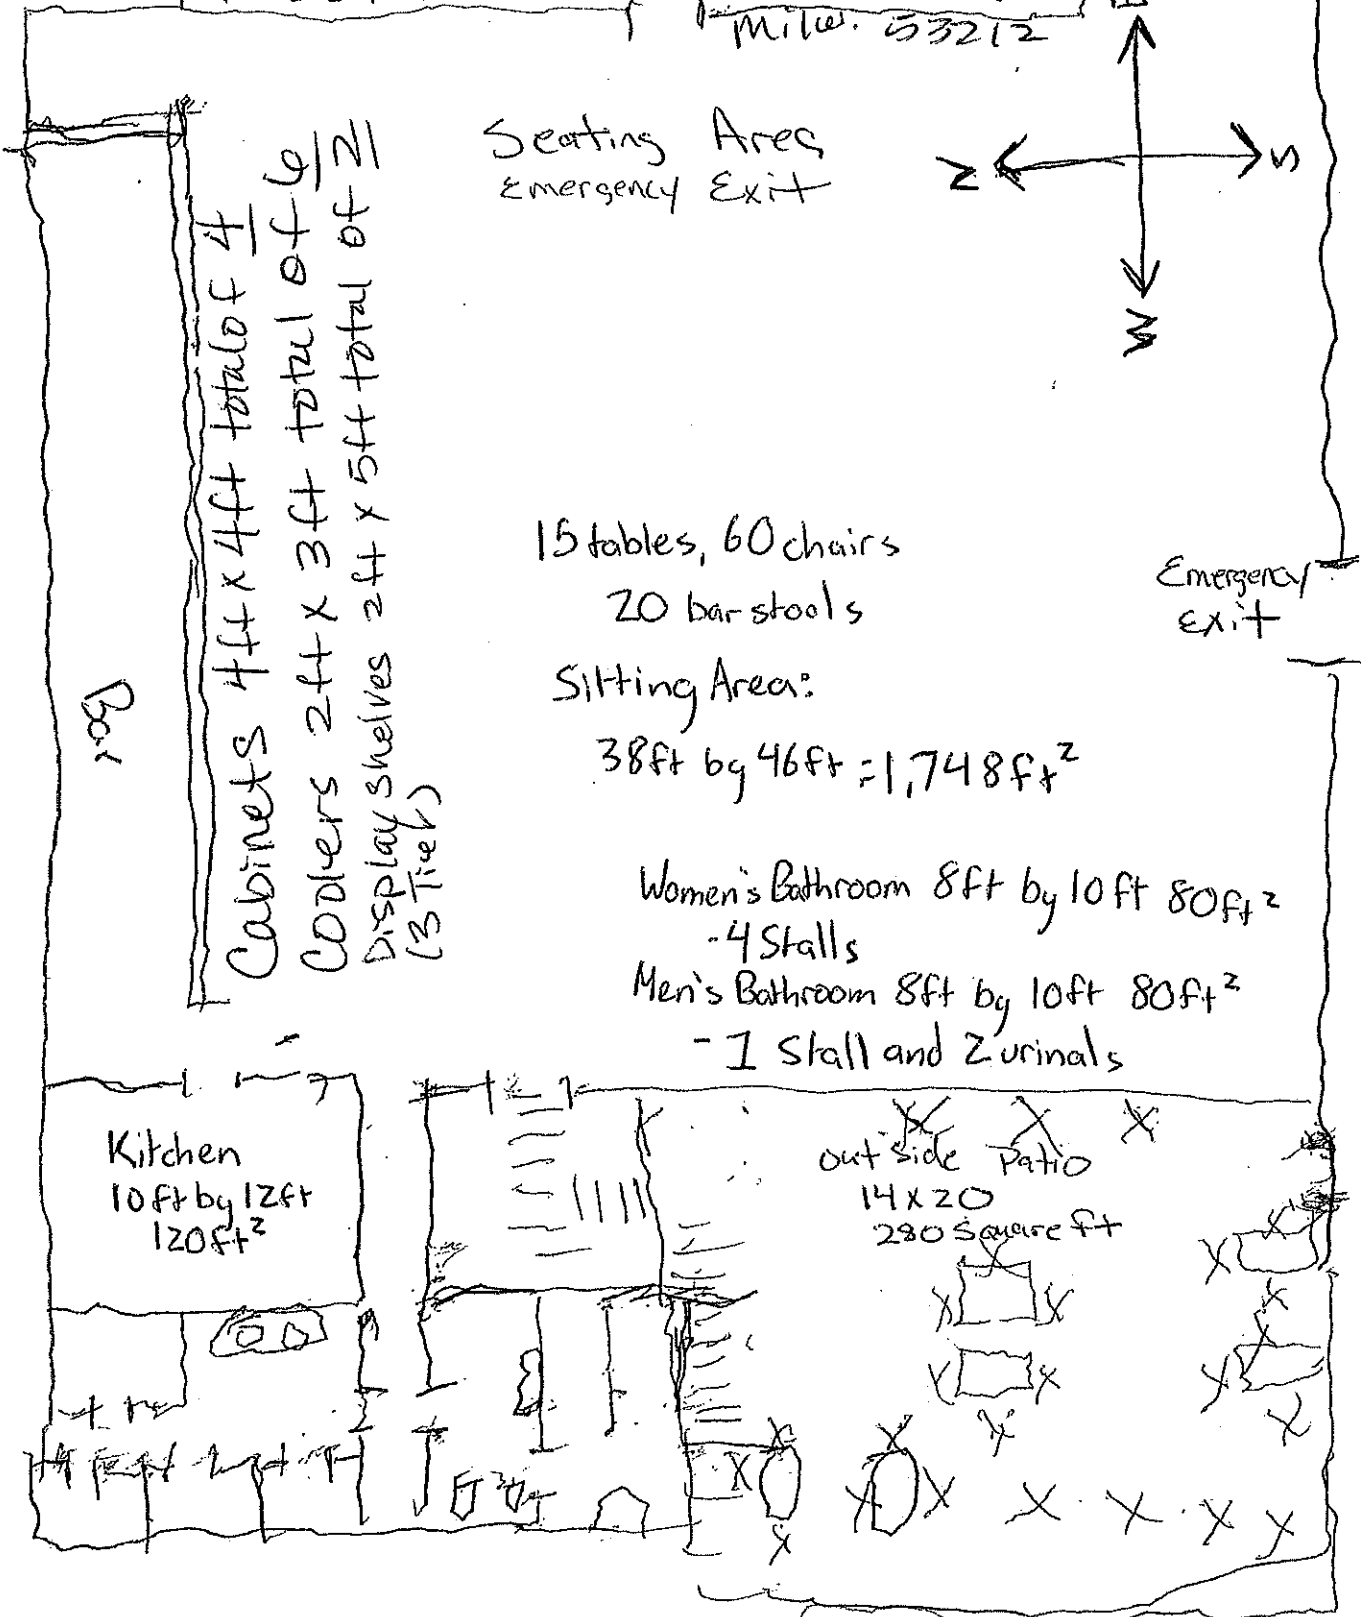 Milw. 53212
Seating Area
Emergency Exit
N
S
W
Cabinets 4ft x 4ft total of 4
Coolers 2ft x 3ft total of 6
Display shelves 2ft x 5ft total of 2
(3 Tier)
Bar
15 tables, 60 chairs
20 bar stools
Emergency
Exit
Sitting Area:
38ft by 46ft = 1,748ft²
Women's Bathroom 8ft by 10ft 80ft²
- 4 Stalls
Men's Bathroom 8ft by 10ft 80ft²
- 1 Stall and 2 urinals
Kitchen
10ft by 12ft
120ft²
outside Patio
14 x 20
280 square ft